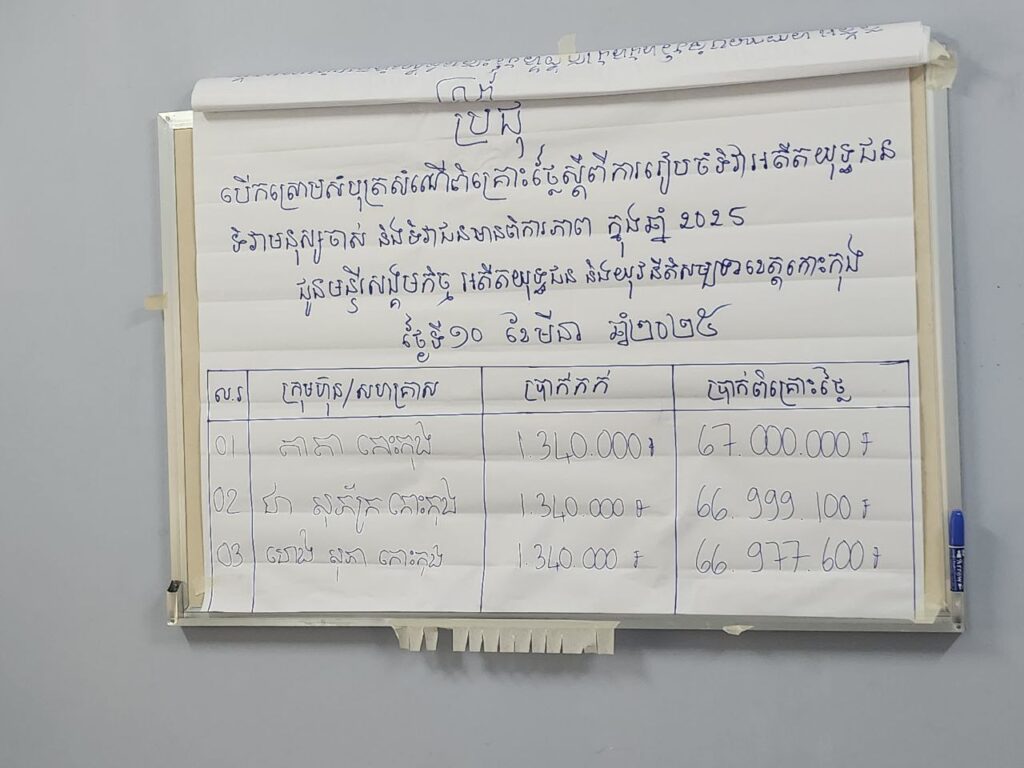 ប្រជុំ
បើកស្រោមសំបុត្រសំណើពិគ្រោះថ្លៃស្តីពីការរៀបចំទិវាអតីតយុទ្ធជន
ទិវាមនុស្សចាស់ និងទិវាជនមានពិការភាព ក្នុងឆ្នាំ 2025
ជូនមន្ទីរសង្គមកិច្ច អតីតយុទ្ធជន និងយុវនីតិសម្បទាខេត្តកោះកុង
ថ្ងៃទី១០ ខែមីនា ឆ្នាំ២០២៥
ល.រ ក្រុមហ៊ុន/សហគ្រាស ប្រាក់កក់ ប្រាក់ពិគ្រោះថ្លៃ
01 តាតា កោះកុង 1.340.000៛ 67.000.000៛
02 ជា សុភ័ក្រ កោះកុង 1.340.000៛ 66.999.100៛
03 ហេង សុភា កោះកុង 1.340.000៛ 66.977.600៛